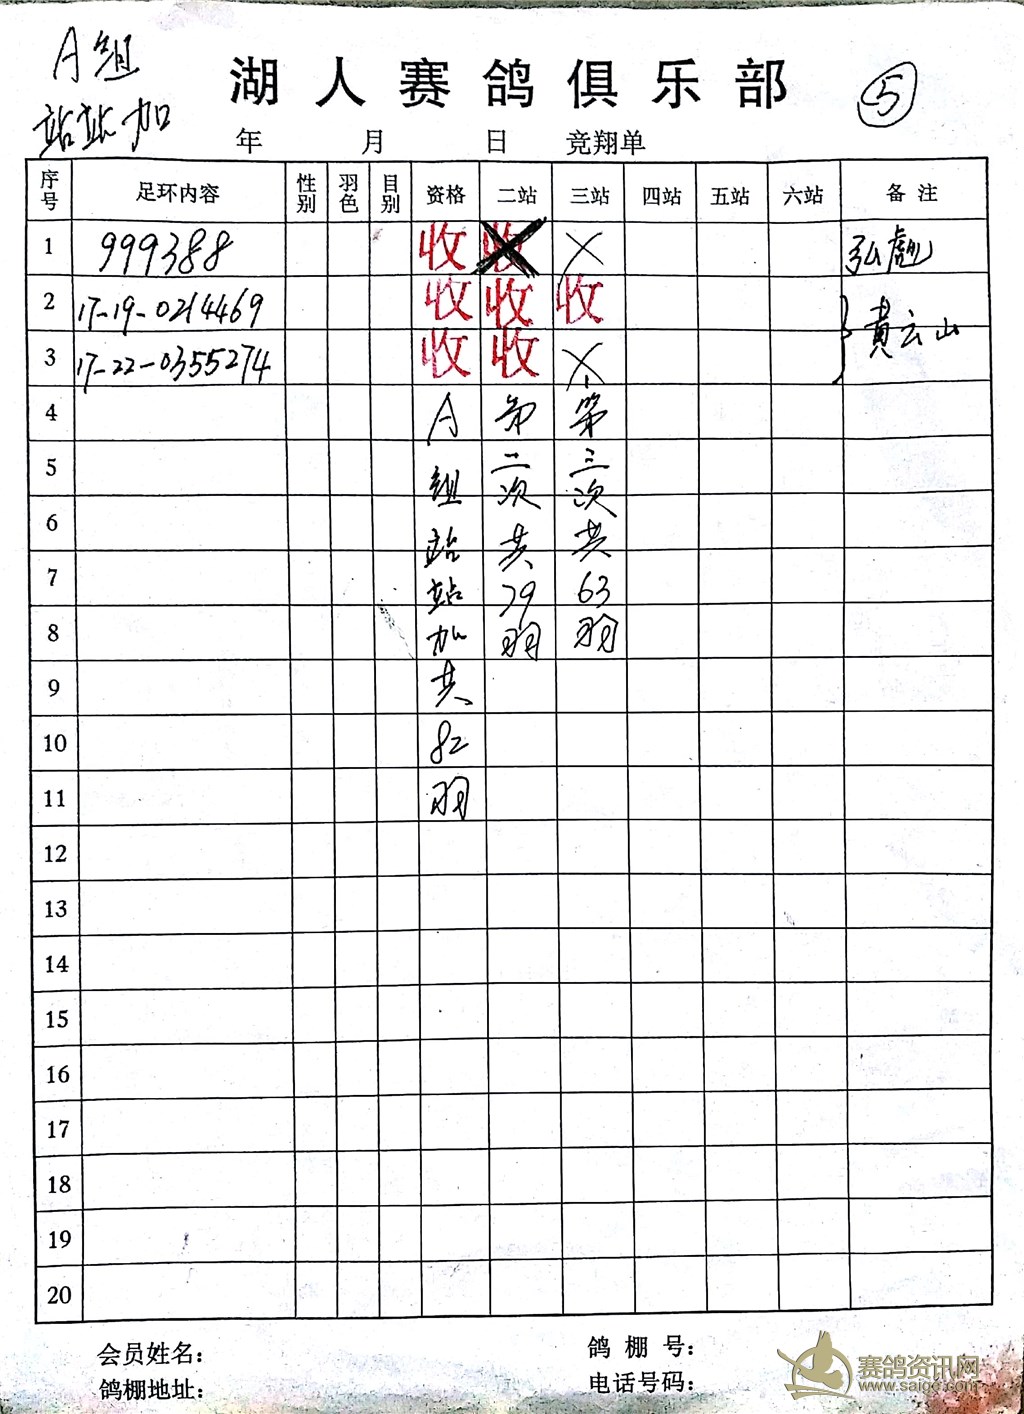 A组
站站加
湖人赛鸽俱乐部
⑤
年 月 日 竞翔单
序号 足环内容 性别 羽色 目别 资格 二站 三站 四站 五站 六站 备注
1 999388 收 收 × 弘彪
2 17-19-0214469 收 收 收 黄云山
3 17-22-0355274 收 收 ×
4
5
6
7
8
9
10
11
12
13
14
15
16
17
18
19
20
A组站站加共82羽
第二次共79羽
第三次共63羽
会员姓名：
鸽棚号：
鸽棚地址：
电话号码：
赛鸽资讯网
www.saige.com